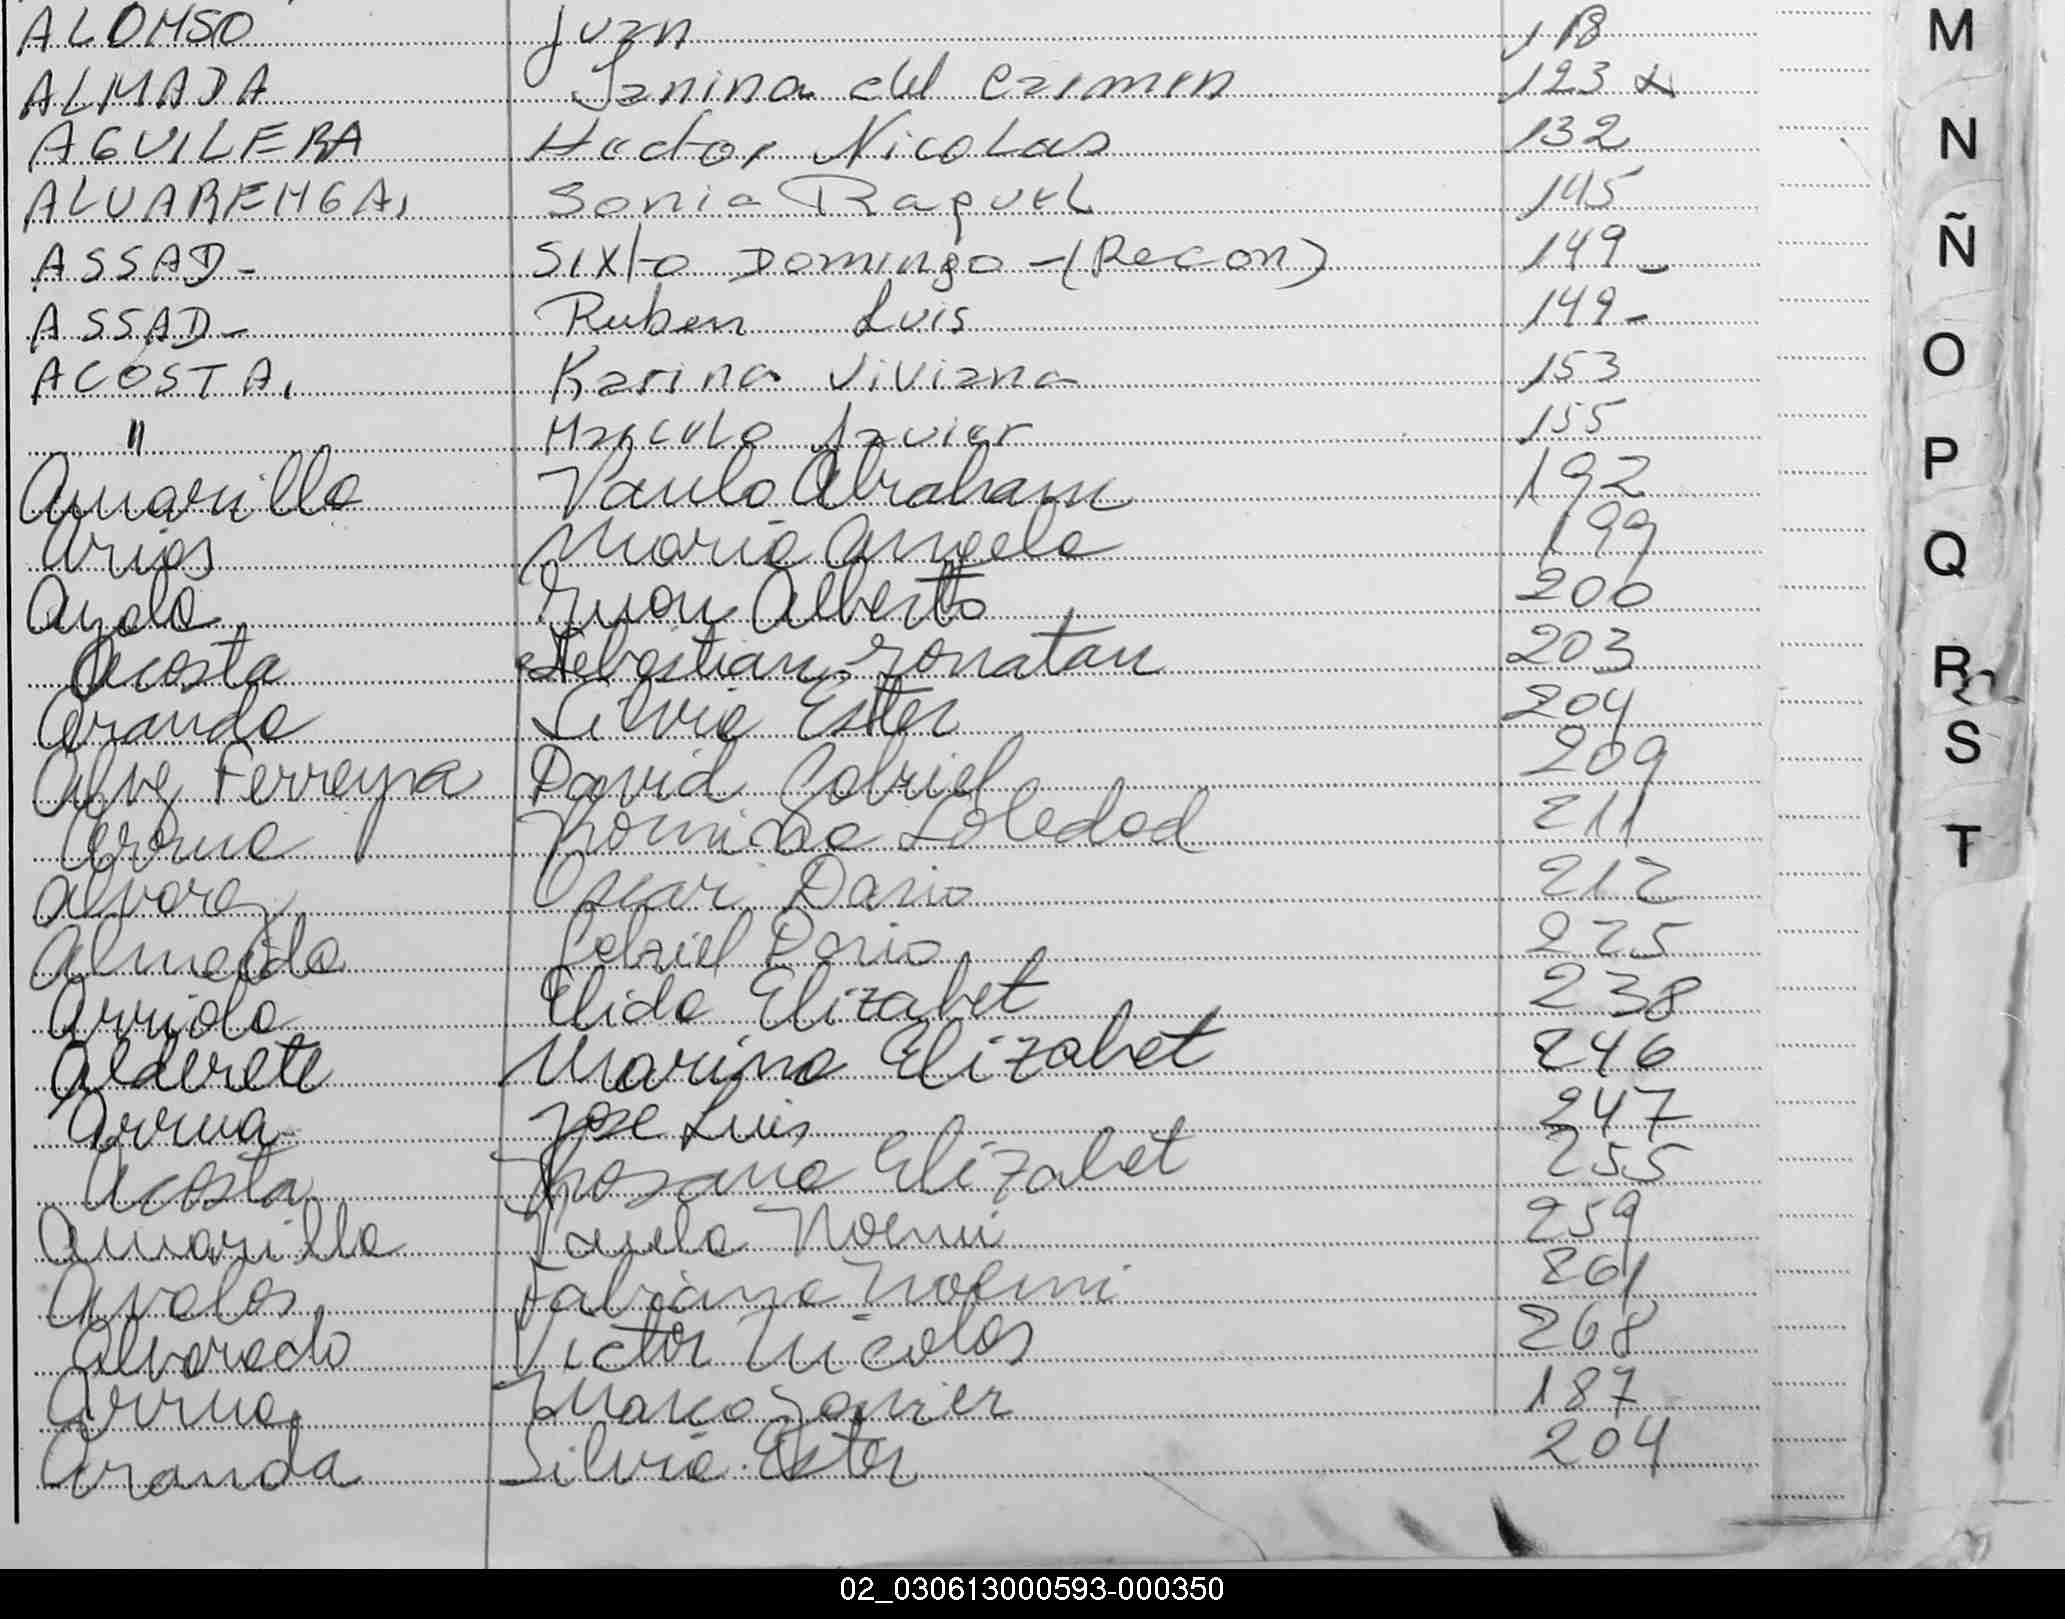 ALONSO Juan 118
ALMADA Janina del Carmen 123 x
AGUILERA Hector Nicolas 132
ALVARENGA, Sonia Raquel 145
ASSAD- Sixto Domingo -(Recon) 149-
ASSAD- Ruben Luis 149-
ACOSTA, Karina Viviana 153
" Marcelo Javier 155
Amarilla Paulo Abraham 192
Arias Maria Angela 199
Ayala Juan Alberto 200
Acosta Sebastian Jonatan 203
Aranda Silvia Ester 204
Alvez Ferreyra David Gabriel 209
Romina Soledad 211
Alvarez Oscar Dario 212
Almeida Gabriel Dario 225
Arriola Elida Elizabet 238
Alderete Marina Elizabet 246
Arrua Jose Luis 247
Acosta Rosana Elizabet 255
Amarilla Paula Noemi 259
Avalos Fabiana Noemi 261
Alvarado Victor Nicolas 268
Arrua Marco Javier 187
Aranda Silvia Ester 204
M
N
Ñ
O
P
Q
R
S
T
02_030613000593-000350